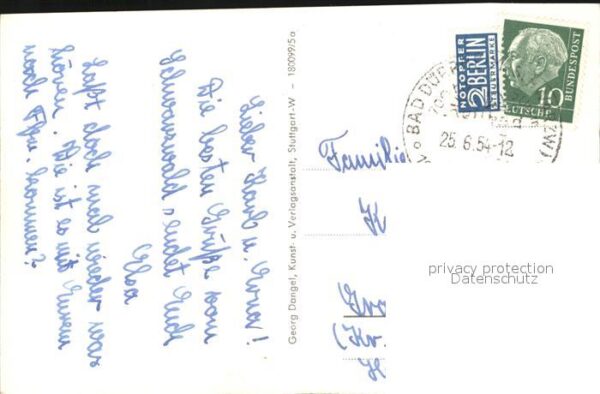 Lieber Karl u. Erna!
Die besten Grüße vom
Schwarzwald sendet Euch
Elsa
Laßt doch mal wieder was
hören. Wie ist es mit Eurem
nach Fbg. kommen?
Georg Dangel, Kunst- u. Verlagsanstalt, Stuttgart-W - 180099/5a
NOTOPFER
2 BERLIN
STEUERMARKE
DEUTSCHE
BUNDESPOST
10
BAD DÜR
25.6.54-12
Familie
K
(Kr.
privacy protection
Datenschutz